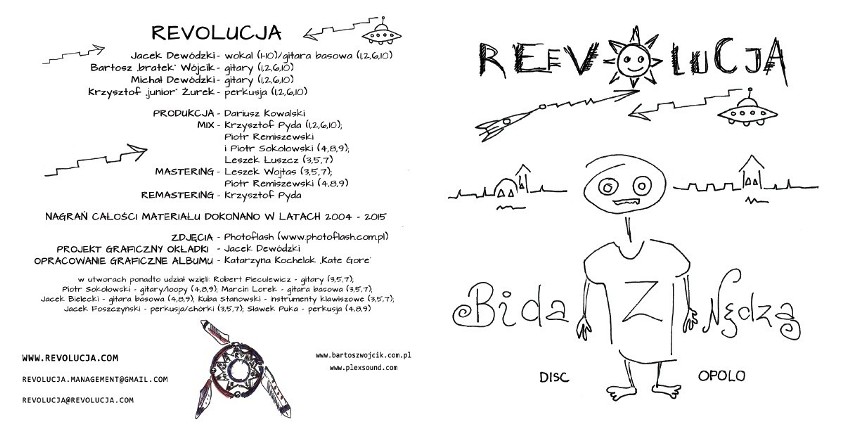 REVOLUCJA
Jacek Dewódzki - wokal (1-10)/gitara basowa (1,2,6,10)
Bartosz „bratek" Wójcik - gitary (1,2,6,10)
Michał Dewódzki - gitary (1,2,6,10)
Krzysztof „junior" Żurek - perkusja (1,2,6,10)
PRODUKCJA - Dariusz Kowalski
MIX - Krzysztof Pyda (1,2,6,10);
Piotr Remiszewski
i Piotr Sokołowski (4,8,9);
Leszek Łuszcz (3,5,7)
MASTERING - Leszek Wojtas (3,5,7);
Piotr Remiszewski (4,8,9)
REMASTERING - Krzysztof Pyda
NAGRAŃ CAŁOŚCI MATERIAŁU DOKONANO W LATACH 2004 - 2015
ZDJĘCIA - Photoflash (www.photoflash.com.pl)
PROJEKT GRAFICZNY OKŁADKI - Jacek Dewódzki
OPRACOWANIE GRAFICZNE ALBUMU - Katarzyna Kochelak „Kate Gore"
w utworach ponadto udział wzięli: Robert Pieculewicz - gitary (3,5,7);
Piotr Sokołowski - gitary/loopy (4,8,9); Marcin Lorek - gitara basowa (3,5,7);
Jacek Bielecki - gitara basowa (4,8,9); Kuba Stanowski - instrumenty klawiszowe (3,5,7);
Jacek Poszczyński - perkusja/chórki (3,5,7); Sławek Puka - perkusja (4,8,9)
WWW.REVOLUCJA.COM
REVOLUCJA.MANAGEMENT@GMAIL.COM
REVOLUCJA@REVOLUCJA.COM
www.bartoszwojcik.com.pl
www.plexsound.com
REEVOLUCJA
Bida Z Nędzą
DISC OPOLO